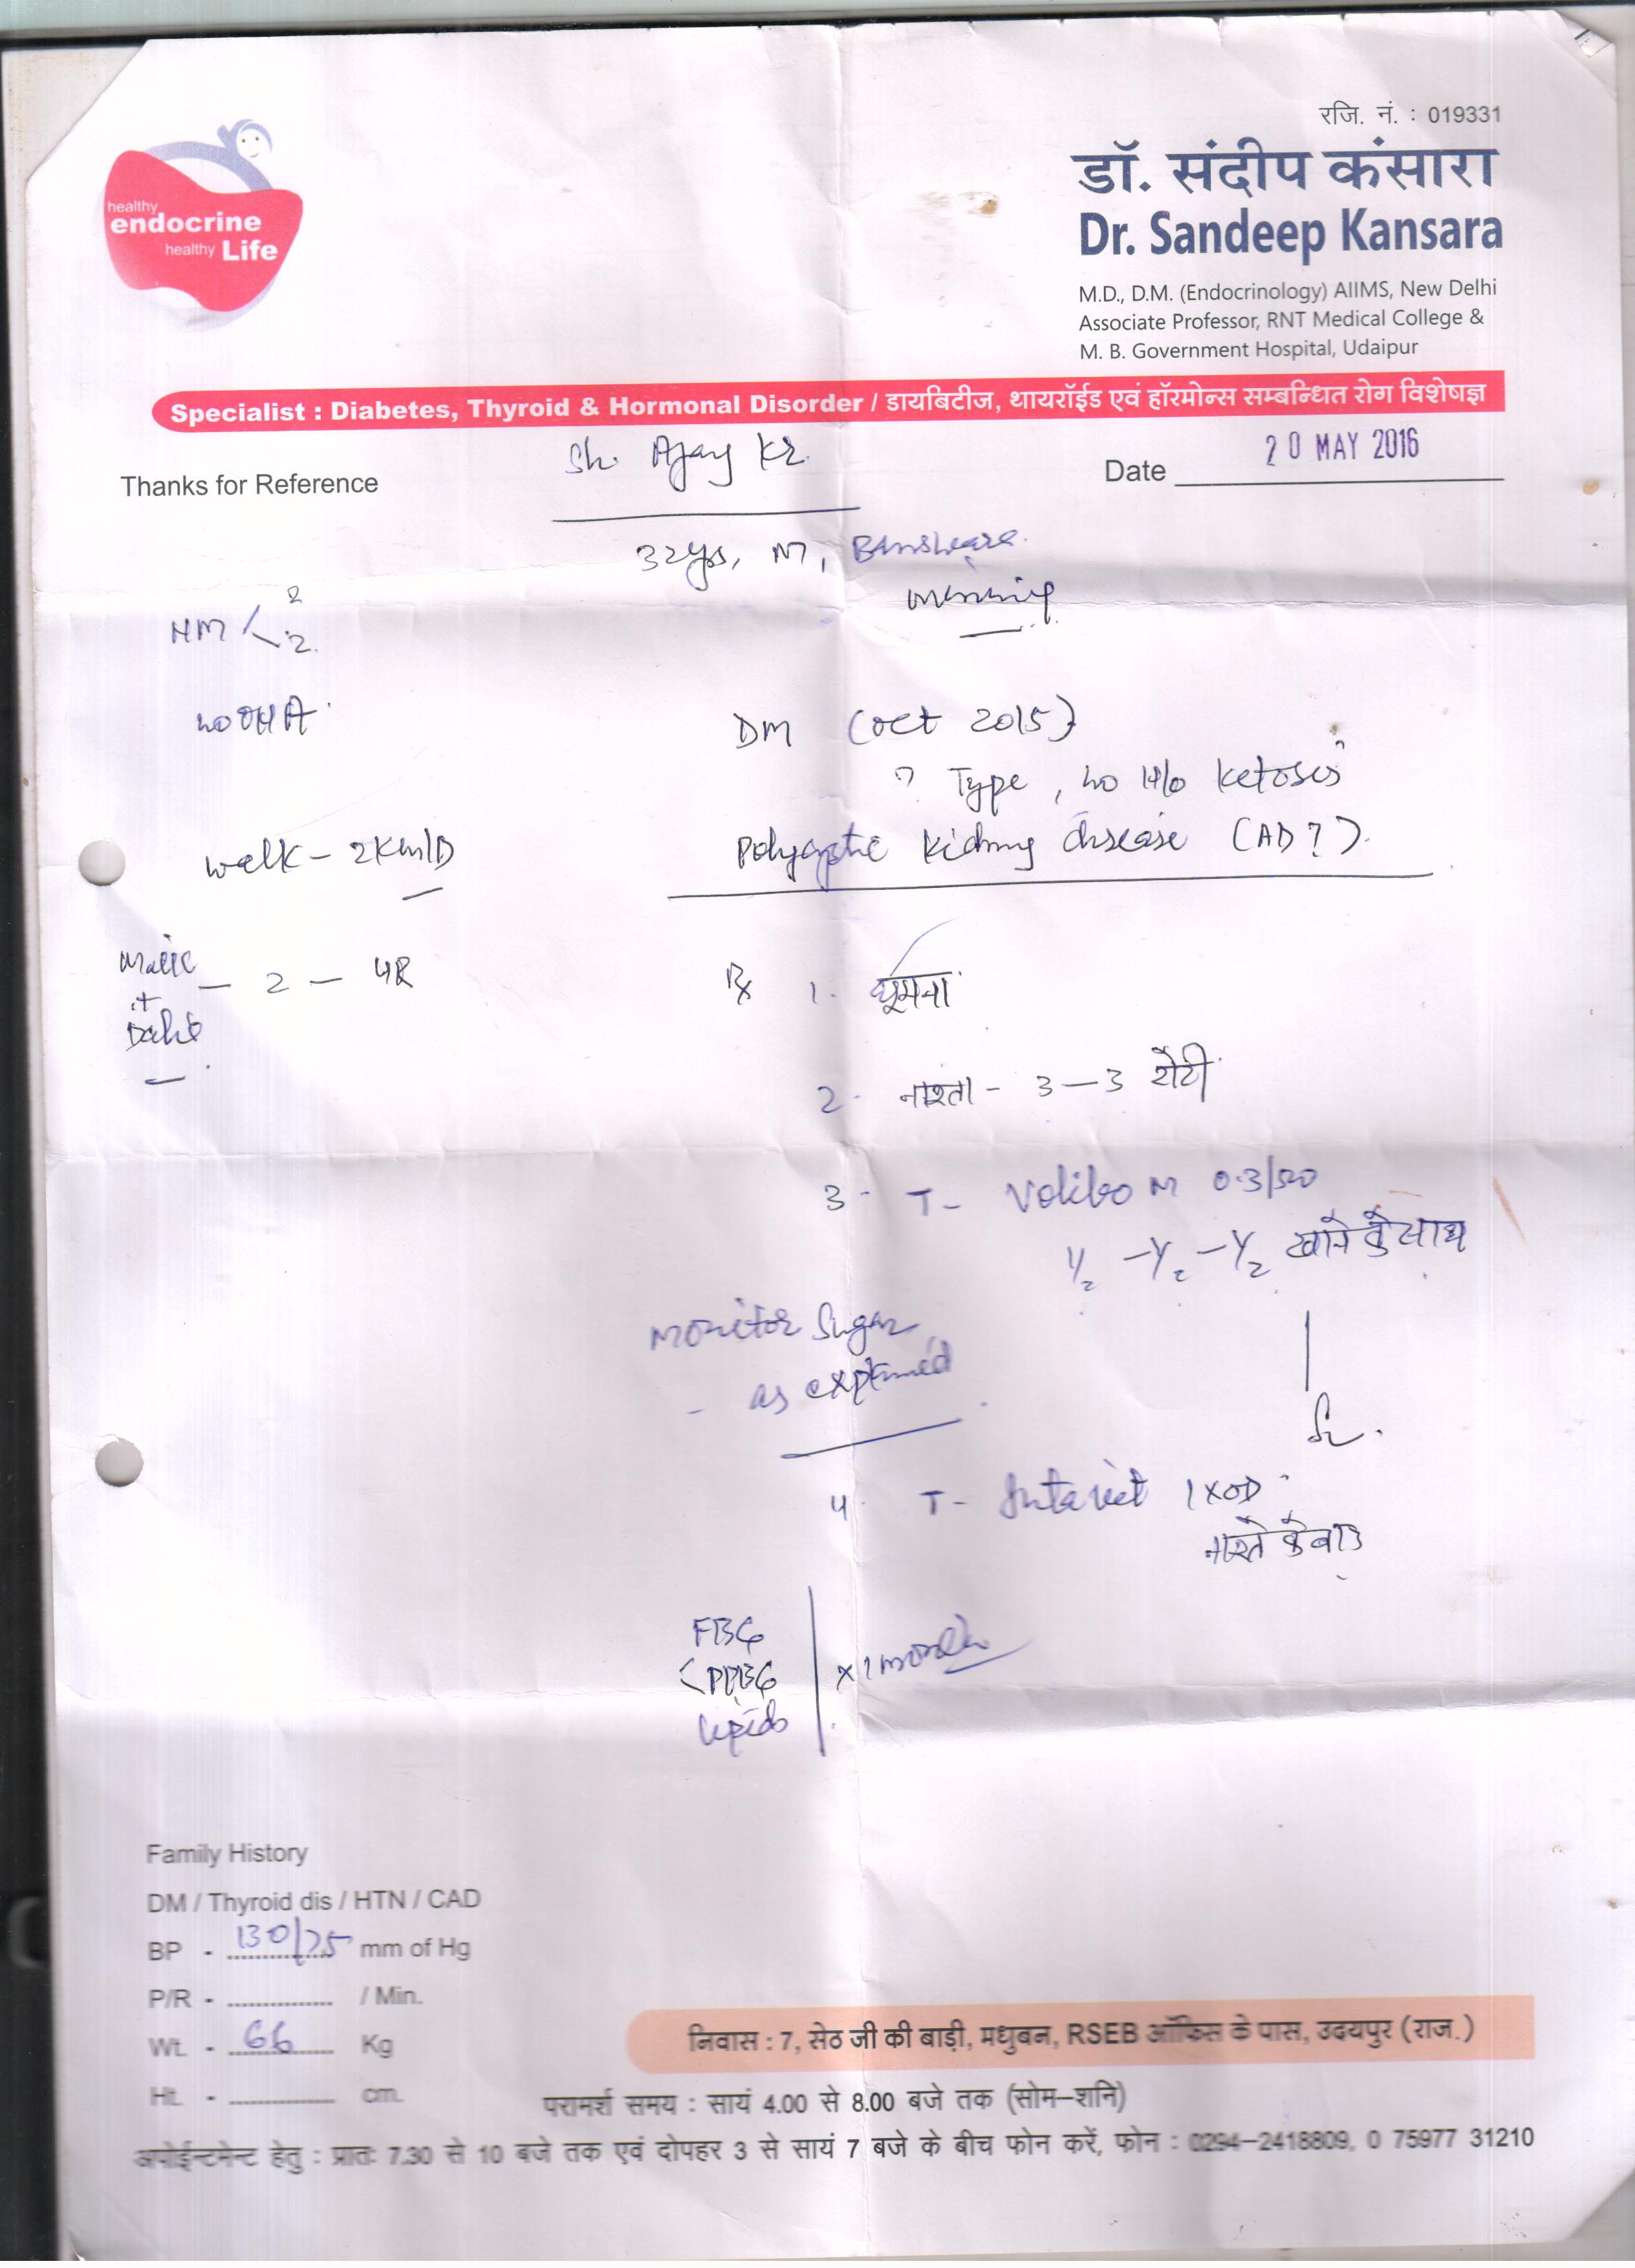 रजि. नं. : 019331
डॉ. संदीप कंसारा
Dr. Sandeep Kansara
healthy
endocrine
healthy Life
M.D., D.M. (Endocrinology) AIIMS, New Delhi
Associate Professor, RNT Medical College &
M. B. Government Hospital, Udaipur
Specialist : Diabetes, Thyroid & Hormonal Disorder / डायबिटीज, थायरॉईड एवं हॉरमोन्स सम्बन्धित रोग विशेषज्ञ
Thanks for Reference
Sh. Ajay Kr.
Date 20 MAY 2016
32yrs, M, Banswara
HM 2
2
no OHA
DM (Oct 2015)
? Type, no H/o ketosis
walk - 2Km/D
Polycystic kidney disease (AD?).
- 2 - 4R
+
Dahi
Rx 1. घूमना
2. नाश्ता - 3-3 रोटी
3. T- Volibo M 0.3/500
1/2 - 1/2 - 1/2 खाने के साथ
Monitor Sugar
- as explained
4. T- 1 X OD
नाश्ते के बाद
FBG
PPBG
Lipids
Family History
DM / Thyroid dis / HTN / CAD
BP - 130/75 mm of Hg
P/R - / Min.
Wt. - 66 Kg
Ht. - cm.
निवास : 7, सेठ जी की बाड़ी, मधुबन, RSEB ऑफिस के पास, उदयपुर (राज.)
परामर्श समय : सायं 4.00 से 8.00 बजे तक (सोम-शनि)
अपोईन्टमेन्ट हेतु : प्रातः 7.30 से 10 बजे तक एवं दोपहर 3 से सायं 7 बजे के बीच फोन करें, फोन : 0294-2418809, 0 75977 31210